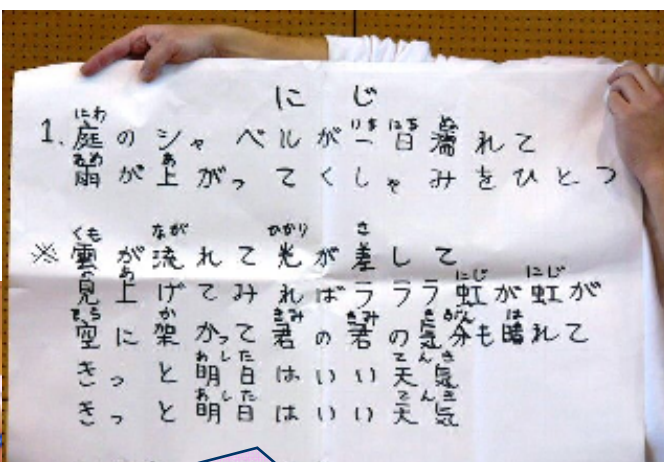 にじ
1. 庭のシャベルが一日濡れて
雨が上がってくしゃみをひとつ
※ 雲が流れて光が差して
見上げてみればラララ虹が虹が
空に架かって君の君の気分も晴れて
きっと明日はいい天気
きっと明日はいい天気